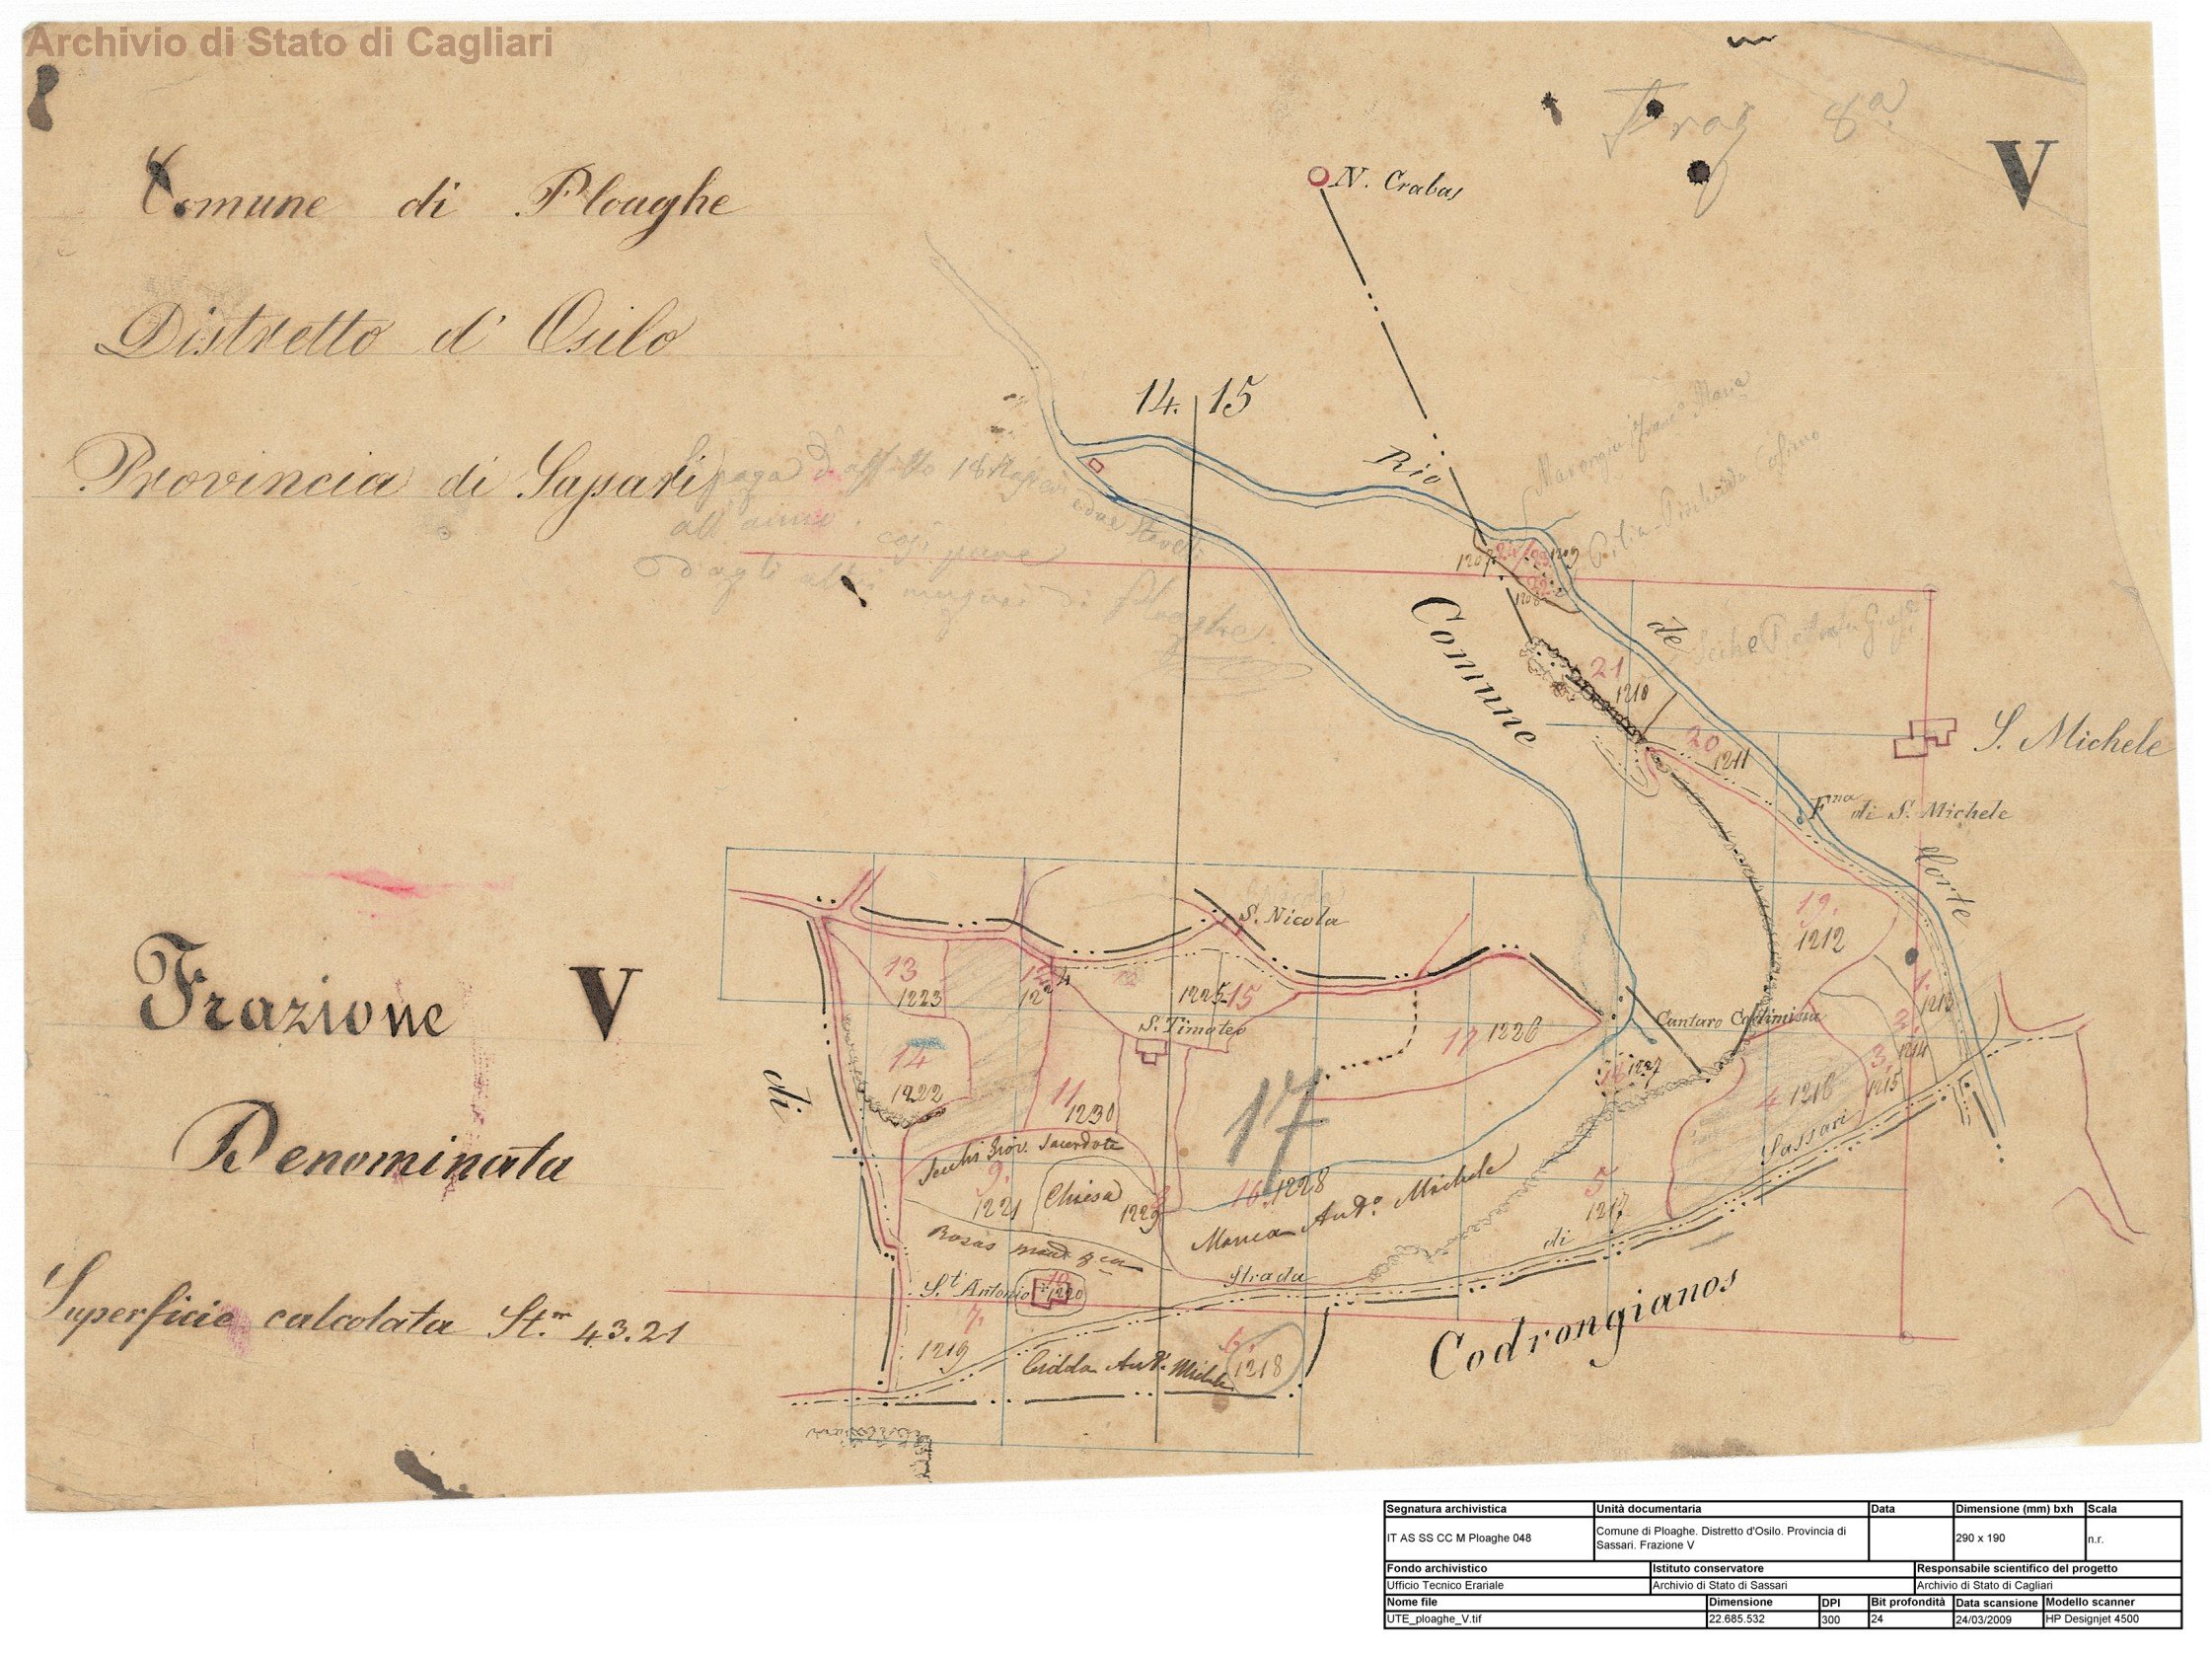 Archivio di Stato di Cagliari
Frag 8a
V
Comune di Ploaghe
N. Crabas
Distretto d' Osilo
14. 15
Provincia di Sassari
Rio
paga d'affitto 18
all'anno.
1207
1209
1208
Comune
de
21
1210
20
1211
S. Michele
Fna di S. Michele
Corte
S. Nicola
19.
1212
13
1223
12
1224
1225
15
S. Timoteo
17
1226
Cantaro
1.
1213
Frazione V
14
1222
11
1230
17
1227
3.
1214
3.
1215
4
1216
di
Denominata
Secchi Giov. Sacerdote
9.
1221
Chiesa
1229
16
1228
Manca Ando. Michele
5
1217
Strada di Sassari
St Antonio
10
1220
Superficie calcolata St.m 43.21
7.
1219
6.
1218
Codrongianos
Segnatura archivistica Unità documentaria Data Dimensione (mm) bxh Scala
IT AS SS CC M Ploaghe 048 Comune di Ploaghe. Distretto d'Osilo. Provincia di
Sassari. Frazione V 290 x 190 n.r.
Fondo archivistico Istituto conservatore Responsabile scientifico del progetto
Ufficio Tecnico Erariale Archivio di Stato di Sassari Archivio di Stato di Cagliari
Nome file Dimensione DPI Bit profondità Data scansione Modello scanner
UTE_ploaghe_V.tif 22.685.532 300 24 24/03/2009 HP Designjet 4500